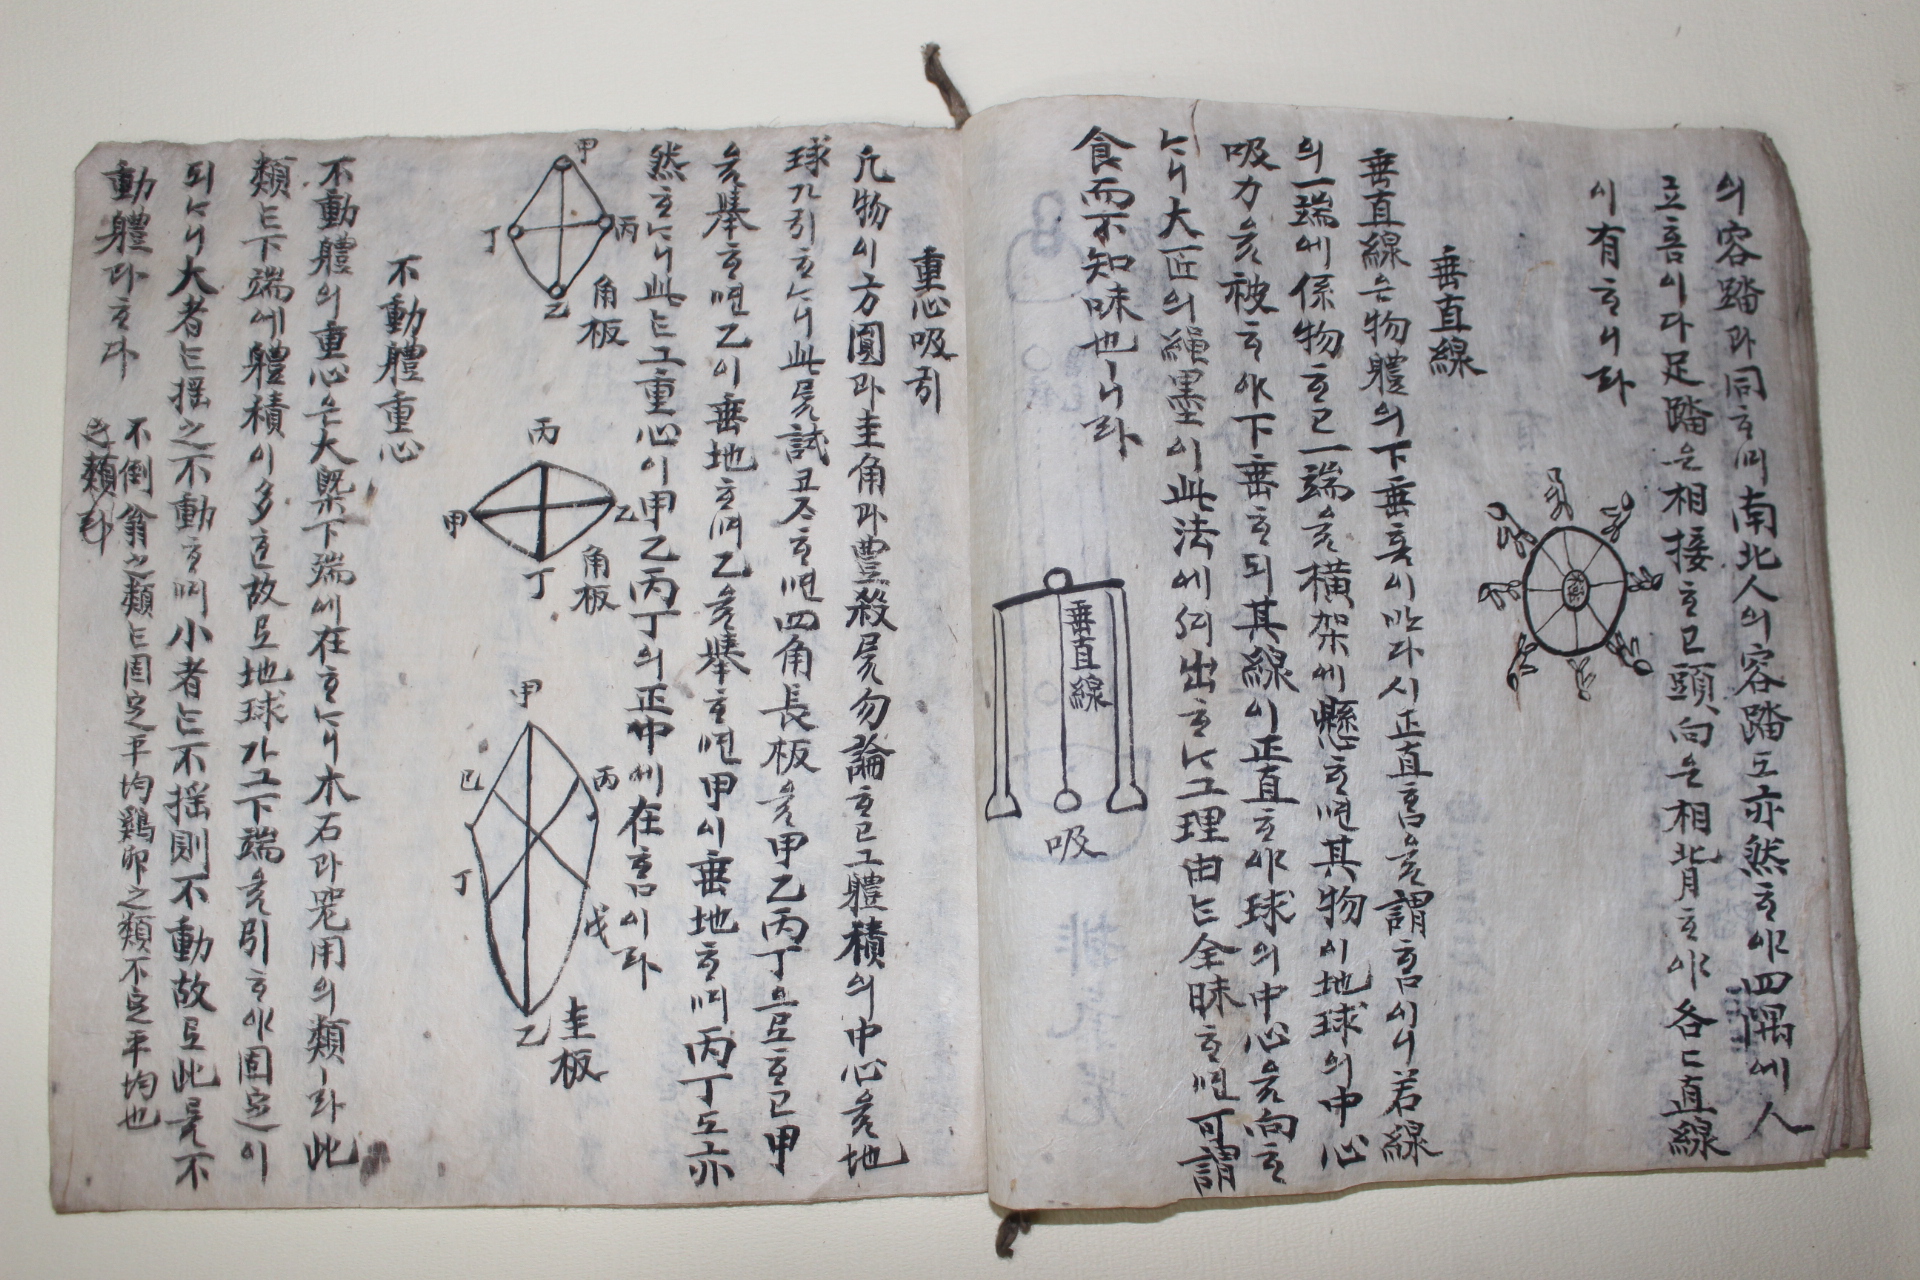 의容踏과同ᄒᆞ며南北人의容踏도亦然ᄒᆞ야四隅에人
도흠이다足踏은相接ᄒᆞ고頭向은相背ᄒᆞ야各各直線
이有ᄒᆞ니라
垂直線
垂直線은物體의下垂흠이ᄆᆞᆺ다시正直흠을謂흠이니若線
의一端에係物ᄒᆞ고一端을橫架에懸ᄒᆞ면其物이地球의中心
吸力을被ᄒᆞ야下垂ᄒᆞ되其線이正直ᄒᆞ야球의中心을向ᄒᆞ
ᄂᆞ니大匠의繩墨이此法에出ᄒᆞᄂᆞ그理由ᄂᆞᆫ全昧ᄒᆞ면可謂
食而不知味也ㅣ니라
垂直線
吸
重心吸引
凡物이方圓과圭角과豊殺을勿論ᄒᆞ고그體積의中心을地
球가引ᄒᆞᄂᆞ니此ᄅᆞᆯ試코ᄌᆞᄒᆞ면四角長板을甲乙丙丁으로ᄒᆞ고甲
을擧ᄒᆞ면乙이垂地ᄒᆞ며乙을擧ᄒᆞ면甲이垂地ᄒᆞ며丙丁도亦
然ᄒᆞᄂᆞ니此ᄂᆞᆫ그重心이甲乙丙丁의正中에在흠이라
甲
丙
丁
乙
角板
丙
甲
乙
丁
角板
甲
丙
己
丁
戊
乙
圭板
不動體重心
不動體의重心은大槩下端에在ᄒᆞᄂᆞ니木石과器用의類ㅣ라此
類ᄂᆞᆫ下端에體積이多ᄒᆞᆫ故로地球가그下端을引ᄒᆞ야固定이
되ᄂᆞ니大者ᄂᆞᆫ搖之不動ᄒᆞ며小者ᄂᆞᆫ不搖則不動故로此ᄅᆞᆯ不
動體라ᄒᆞ다
不倒翁之類ᄂᆞᆫ固定平均鷄卵之類不定平均也
類라